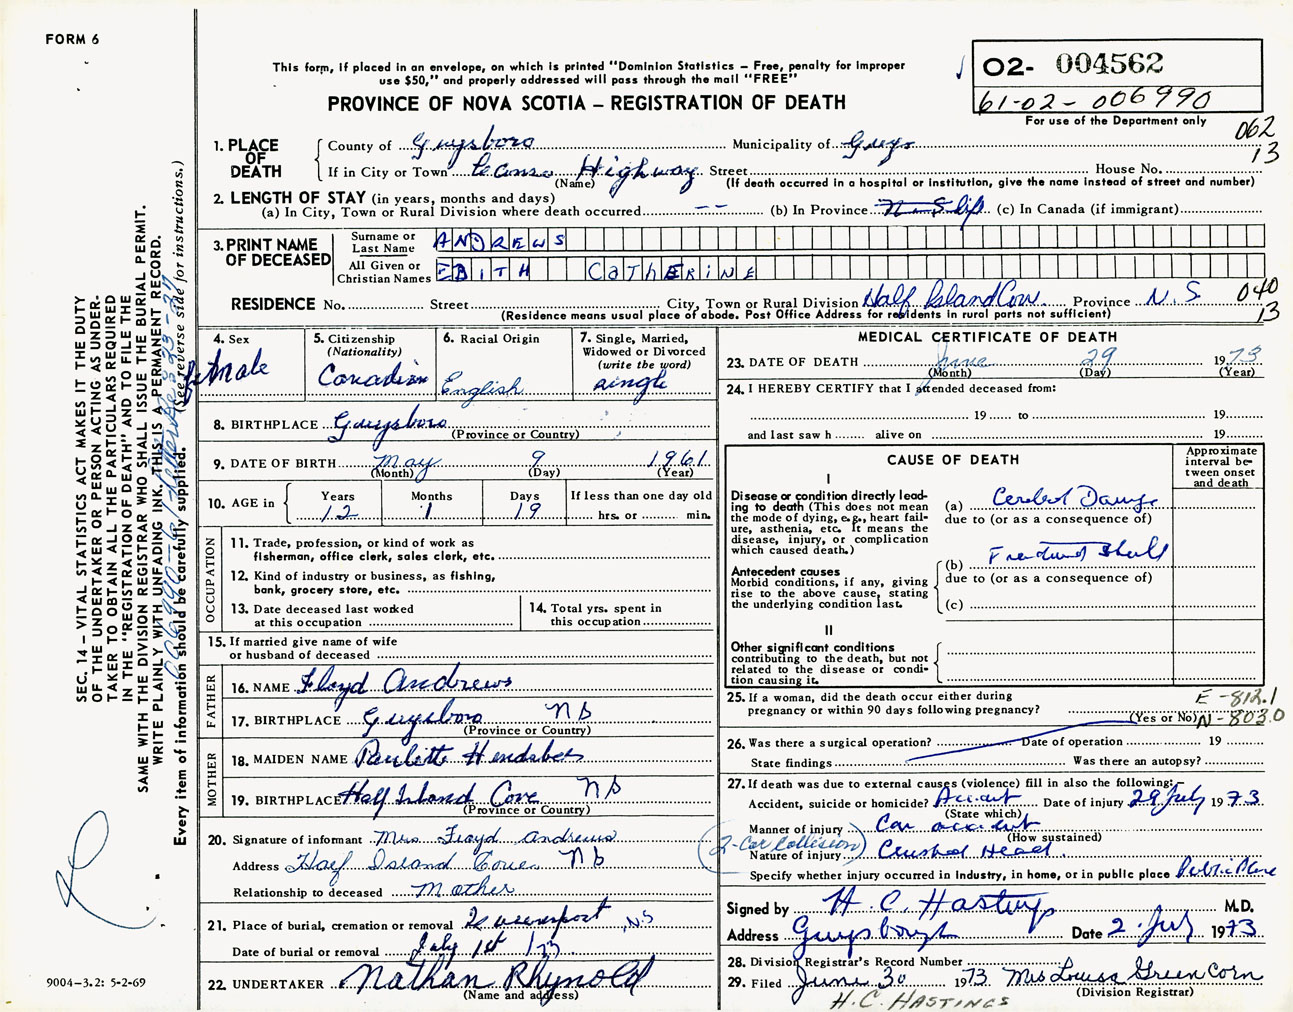 FORM 6
This form, if placed in an envelope, on which is printed "Dominion Statistics – Free, penalty for improper
use $50," and properly addressed will pass through the mail "FREE"
PROVINCE OF NOVA SCOTIA – REGISTRATION OF DEATH
O2- 004562
61-02-006990
For use of the Department only
062
13
1. PLACE OF DEATH
County of Guysboro Municipality of Guys
If in City or Town Canso Highway Street House No.
(Name) (If death occurred in a hospital or institution, give the name instead of street and number)
2. LENGTH OF STAY (in years, months and days)
(a) In City, Town or Rural Division where death occurred -- (b) In Province (c) In Canada (if immigrant)
3. PRINT NAME OF DECEASED
Surname or Last Name ANDREWS
All Given or Christian Names EDITH CATHERINE
RESIDENCE No. Street City, Town or Rural Division Half Island Cove Province N.S
(Residence means usual place of abode. Post Office Address for residents in rural parts not sufficient)
040
13
4. Sex female
5. Citizenship (Nationality) Canadian
6. Racial Origin English
7. Single, Married, Widowed or Divorced (write the word) single
8. BIRTHPLACE Guysboro
(Province or Country)
9. DATE OF BIRTH May 9 1961
(Month) (Day) (Year)
10. AGE in Years 12 Months 1 Days 19 If less than one day old hrs. or min.
OCCUPATION
11. Trade, profession, or kind of work as
fisherman, office clerk, sales clerk, etc.
12. Kind of industry or business, as fishing,
bank, grocery store, etc.
13. Date deceased last worked
at this occupation
14. Total yrs. spent in
this occupation
15. If married give name of wife
or husband of deceased
FATHER
16. NAME Floyd Andrews
17. BIRTHPLACE Guysboro NS
(Province or Country)
MOTHER
18. MAIDEN NAME Paulette Hendsbee
19. BIRTHPLACE Half Island Cove NS
(Province or Country)
20. Signature of informant Mrs Floyd Andrews
Address Half Island Cove NS
Relationship to deceased Mother
21. Place of burial, cremation or removal Queensport, N.S
Date of burial or removal July 1st /73
22. UNDERTAKER Nathan Rhynold
(Name and address)
MEDICAL CERTIFICATE OF DEATH
23. DATE OF DEATH June 29 1973
(Month) (Day) (Year)
24. I HEREBY CERTIFY that I attended deceased from:
19 to 19
and last saw h alive on 19
CAUSE OF DEATH
Approximate interval between onset and death
I
Disease or condition directly leading
to death (This does not mean
the mode of dying, e.g., heart failure,
asthenia, etc. It means the
disease, injury, or complication
which caused death.)
(a) Cerebral Damage
due to (or as a consequence of)
Antecedent causes
Morbid conditions, if any, giving
rise to the above cause, stating
the underlying condition last.
(b) Fractured Skull
due to (or as a consequence of)
(c)
II
Other significant conditions
contributing to the death, but not
related to the disease or condition
causing it.
25. If a woman, did the death occur either during
pregnancy or within 90 days following pregnancy?
(Yes or No)
E-812.1
N-803.0
26. Was there a surgical operation? Date of operation 19
State findings Was there an autopsy?
27. If death was due to external causes (violence) fill in also the following:–
Accident, suicide or homicide? Accident Date of injury 29 July 1973
(State which)
Manner of injury Car accident
(How sustained)
(2-Car Collision)
Nature of injury Crushed Head.
Specify whether injury occurred in industry, in home, or in public place Public Place
Signed by H. C. Hastings M.D.
Address Guysborough Date 2 July 1973
28. Division Registrar's Record Number
29. Filed June 30 1973 Mrs Louise Greencorn
(Division Registrar)
H.C. HASTINGS
SEC. 14 – VITAL STATISTICS ACT MAKES IT THE DUTY
OF THE UNDERTAKER OR PERSON ACTING AS UNDERTAKER
TO OBTAIN ALL THE PARTICULARS REQUIRED
IN THE "REGISTRATION OF DEATH" AND TO FILE THE
SAME WITH THE DIVISION REGISTRAR WHO SHALL ISSUE THE BURIAL PERMIT.
WRITE PLAINLY WITH UNFADING INK. THIS IS A PERMANENT RECORD.
Every item of information should be carefully supplied. (See reverse side for instructions.)
9004-3.2: 5-2-69